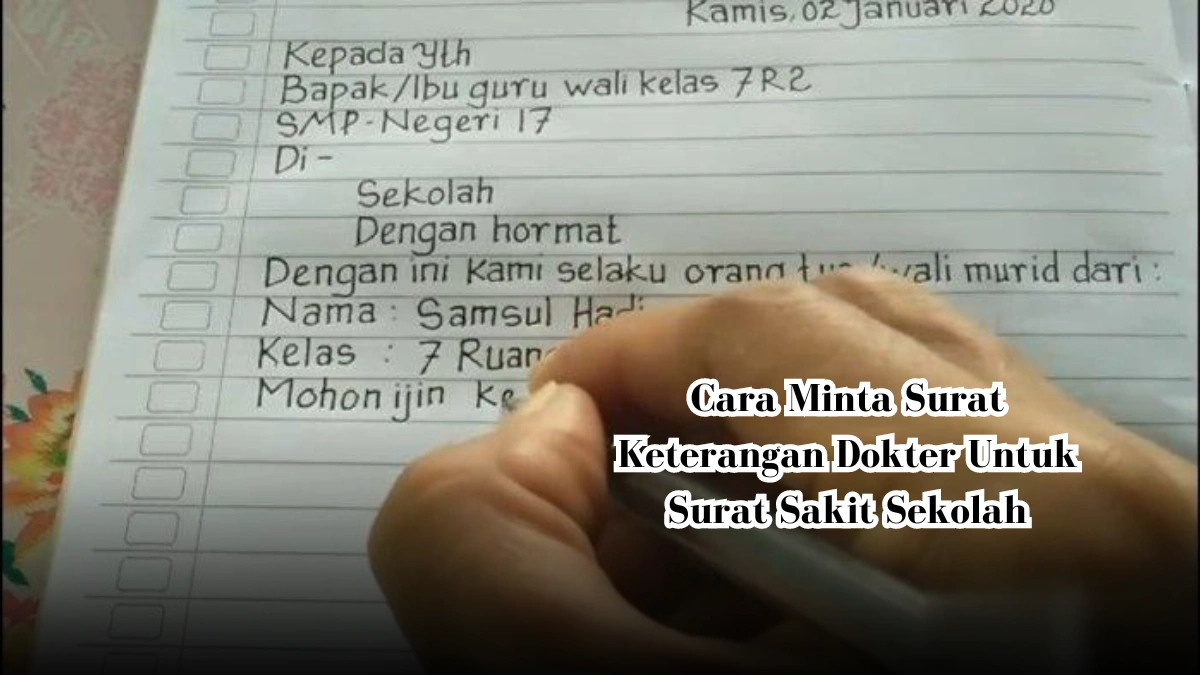 Kamis, 02 Januari 2020
Kepada Yth
Bapak/Ibu guru wali kelas 7R2
SMP-Negeri 17
Di -
Sekolah
Dengan hormat
Dengan ini Kami selaku orang tua/wali murid dari :
Nama : Samsul Hadi
Kelas : 7 Ruang
Mohon ijin ke
Cara Minta Surat
Keterangan Dokter Untuk
Surat Sakit Sekolah